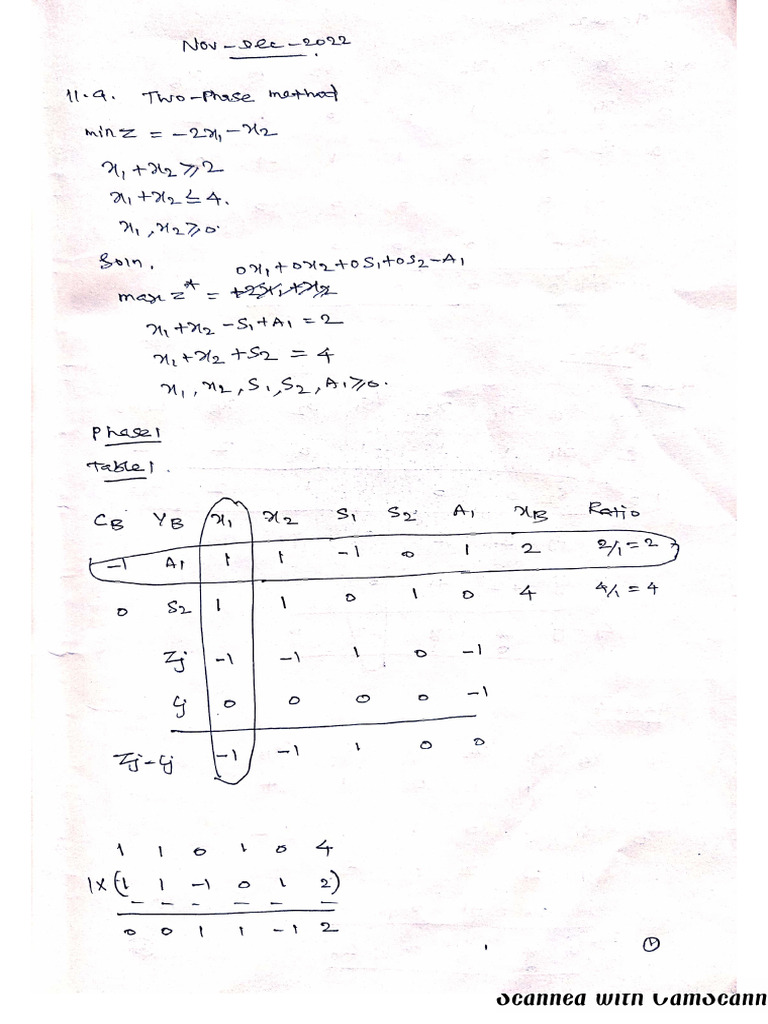 Nov-Dec-2022
11.a. Two-Phase method
min Z = -2x₁ - x₂
x₁ + x₂ ≥ 2
x₁ + x₂ ≤ 4.
x₁, x₂ ≥ 0.
Soln. 0x₁ + 0x₂ + 0S₁ + 0S₂ - A₁
max Z* = +2x₁ + x₂
x₁ + x₂ - S₁ + A₁ = 2
x₁ + x₂ + S₂ = 4
x₁, x₂, S₁, S₂, A₁ ≥ 0.
Phase 1
Table 1.
CB YB x₁ x₂ S₁ S₂ A₁ xB Ratio
-1 A₁ 1 1 -1 0 1 2 2/1 = 2
0 S₂ 1 1 0 1 0 4 4/1 = 4
Zj -1 -1 1 0 -1
Cj 0 0 0 0 -1
Zj-Cj -1 -1 1 0 0
1 1 0 1 0 4
1X (1 1 -1 0 1 2)
- - - - - -
0 0 1 1 -1 2
1
Scanned with CamScann